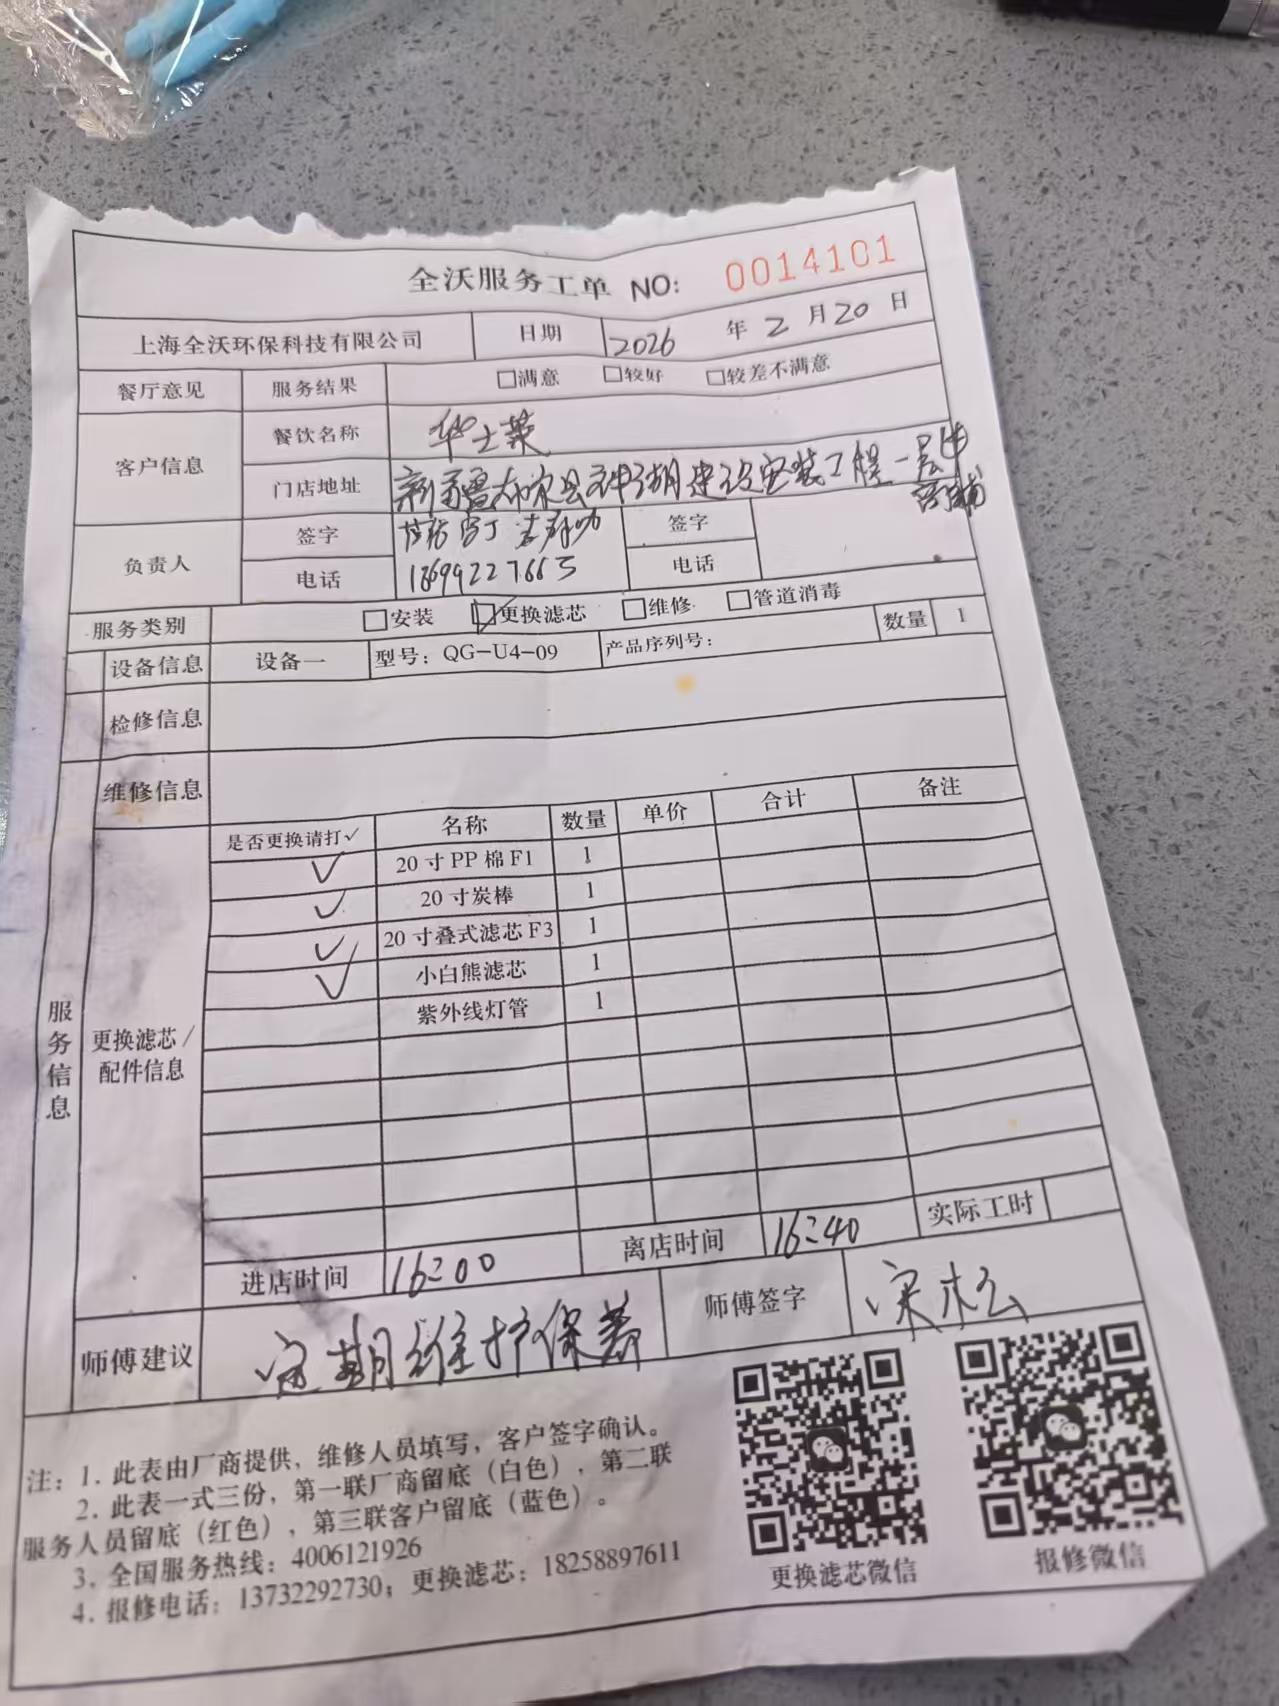 全沃服务工单 NO: 0014101
上海全沃环保科技有限公司 日期 2026 年 2 月 20 日
餐厅意见 服务结果 □满意 □较好 □较差不满意
客户信息 餐饮名称 华士莱
门店地址 新疆 县 湖建设安装工程一层
商铺
负责人 签字 签字
电话 电话
服务类别 □安装 ☑更换滤芯 □维修 □管道消毒
设备信息 设备一 型号：QG-U4-09 产品序列号： 数量 1
检修信息
维修信息
服务信息
更换滤芯/配件信息
是否更换请打✓ 名称 数量 单价 合计 备注
✓ 20寸PP棉F1 1
✓ 20寸炭棒 1
✓ 20寸叠式滤芯F3 1
✓ 小白熊滤芯 1
紫外线灯管 1
进店时间 16:00 离店时间 16:40 实际工时
师傅建议 定期维护保养 师傅签字 宋松
注：1. 此表由厂商提供，维修人员填写，客户签字确认。
2. 此表一式三份，第一联厂商留底（白色），第二联
服务人员留底（红色），第三联客户留底（蓝色）。
3. 全国服务热线：4006121926
4. 报修电话：13732292730；更换滤芯：18258897611
更换滤芯微信 报修微信